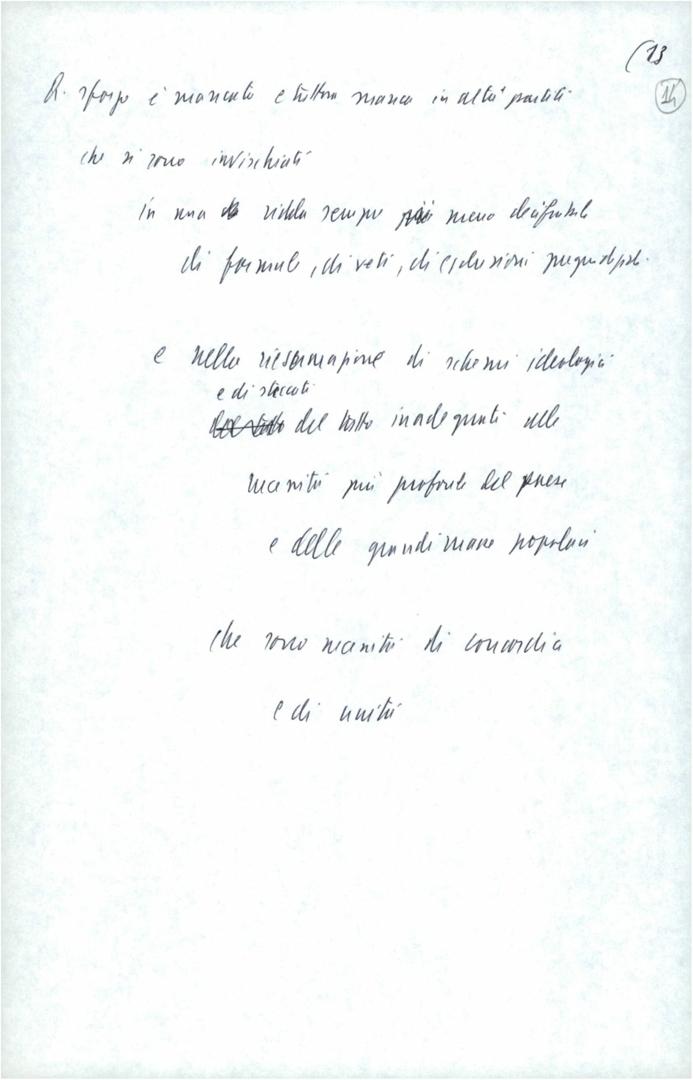 (13
14
R. sforzo è mancato e tuttora manca in altri partiti
che si sono invischiati
in una ridda sempre più meno decifrabile
di formule, di veti, di esclusioni pregiudiz.
e nella riesumazione di schemi ideologici
e di steccati
del tutto inadeguati alle
necessità più profonde del paese
e delle grandi masse popolari
che sono necessità di concordia
e di unità